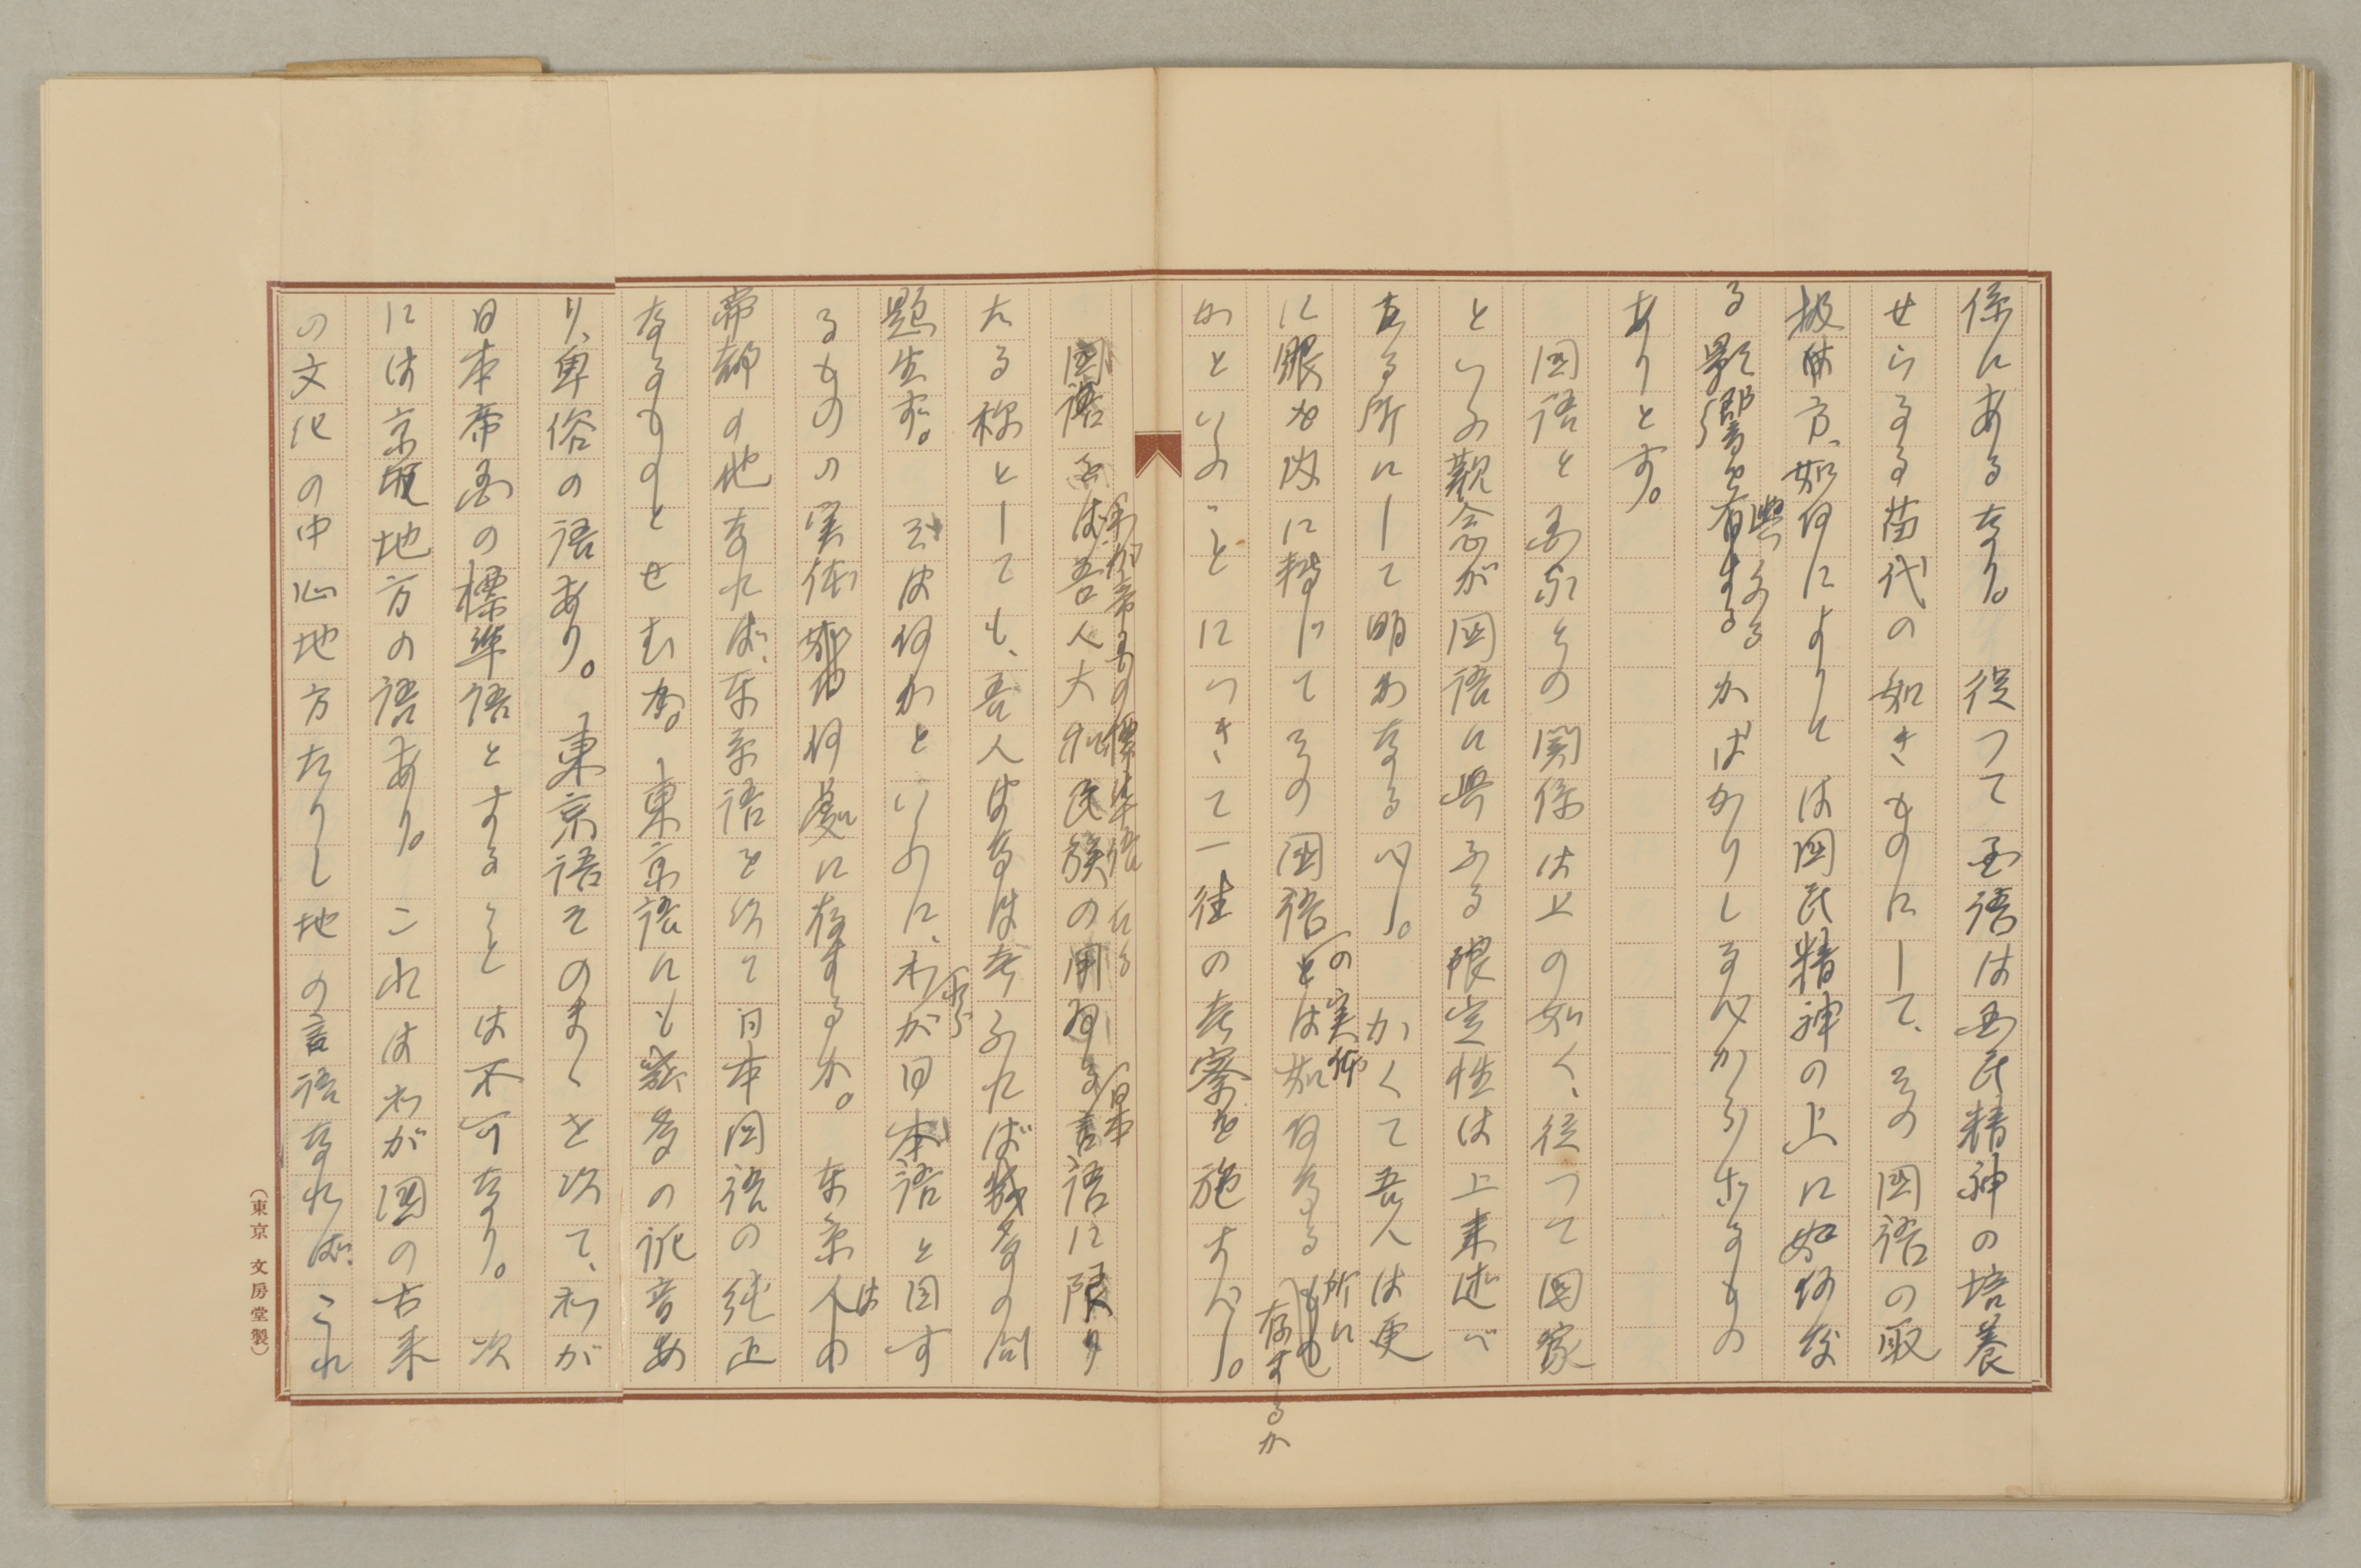 係にあるなり。従つて国語は国民精神の培養
せらるる苗代の如きものにして、その国語の取
扱方、如何によりては国民精神の上に如何な
る影響を与ふるかはかりしるべからざるもの
ありとす。
国語と国家との関係は上の如く、従つて国家
といふ観念が国語に与ふる限定性は上来述べ
たる所にして明かなるべし。かくて吾人は更
に眼を内に転じてその国語の実体は如何なる所に存するか
かといふことにつきて一往の考察を施すべし。
国語は日本帝国の標準語たる
吾人大和民族の言語に限り
たる称としても、吾人はなほ考ふれば幾多の問
題生ず。そは何かといふに、わが日本語と目す
るものの実体那辺何処に存するか。東京人は
帝都の地なれば、東京語を以て日本国語の純正
なるものとせむか。東京語にも幾多の訛音あ
り、卑俗の語あり。東京語そのまゝを以て、わが
日本帝国の標準語とすることは不可なり。次
には京畿地方の語あり。これはわが国の古来
の文化の中心地方たりし地の言語なれば、これ
（東京 文房堂製）